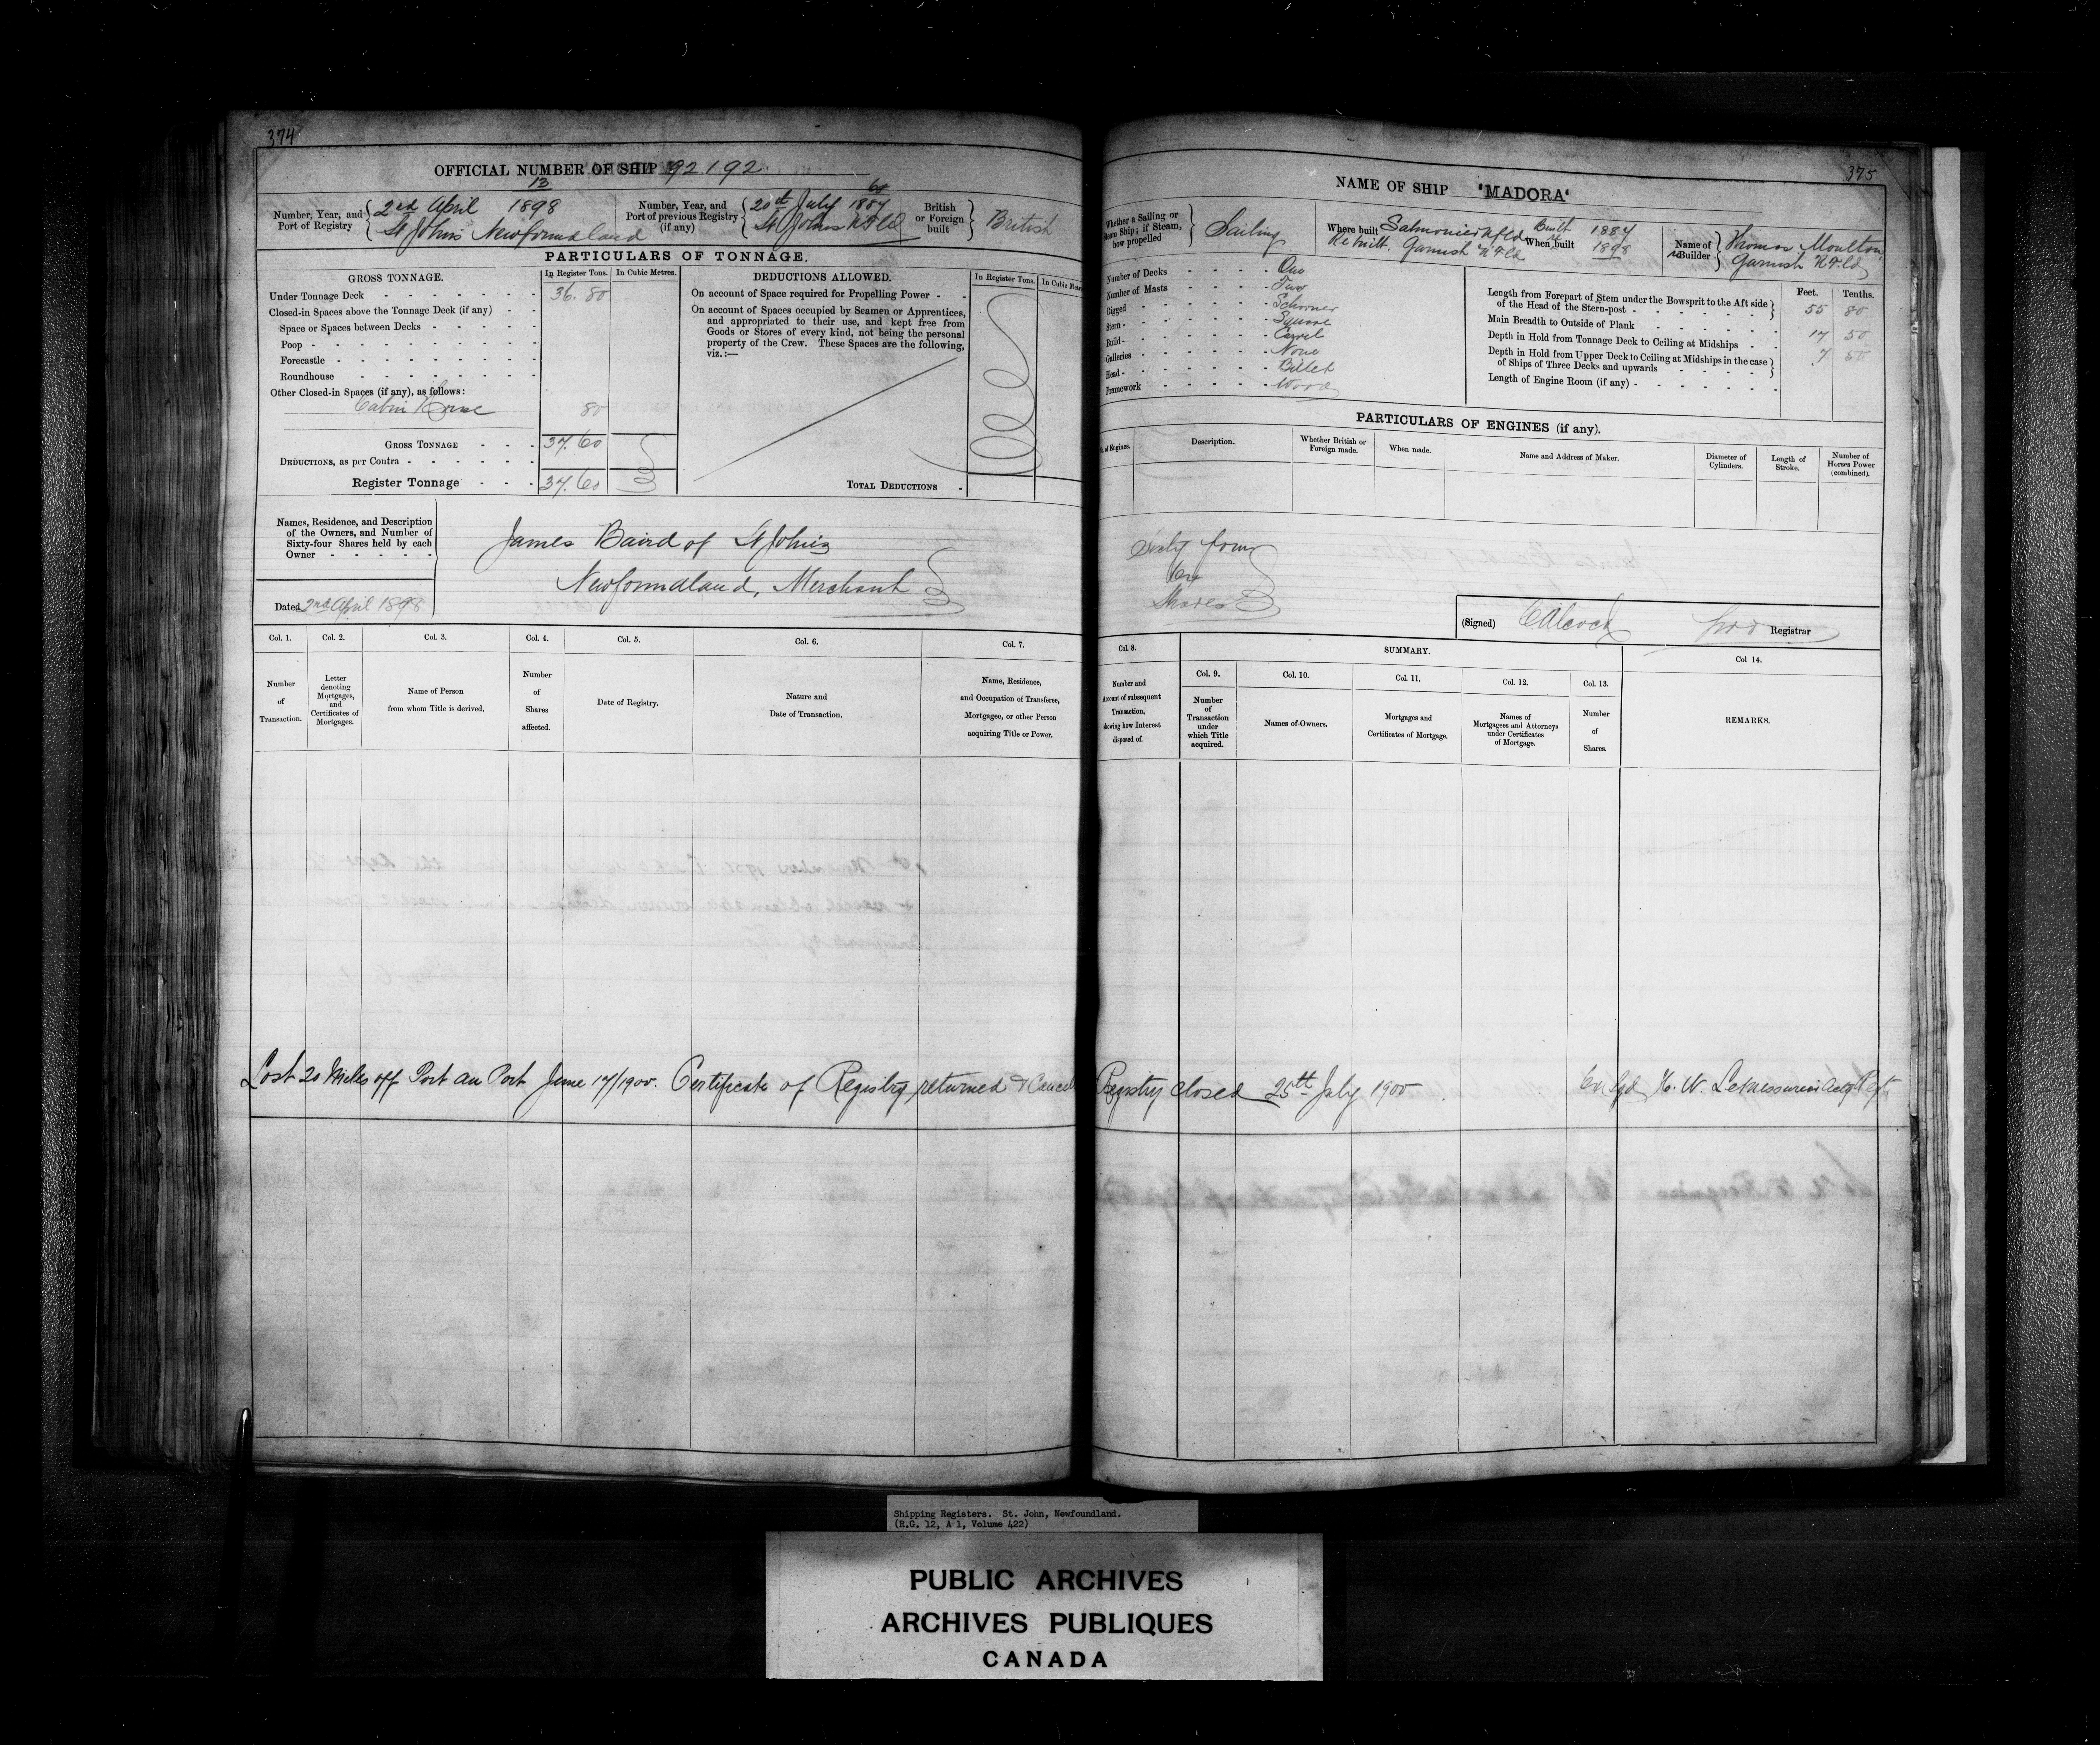 374
OFFICIAL NUMBER OF SHIP 92192
Number, Year, and Port of Registry
13
2nd April 1898
St Johns Newfoundland
Number, Year, and Port of previous Registry (if any)
60
20th July 1887
St Johns NFld
British or Foreign built
British
PARTICULARS OF TONNAGE.
GROSS TONNAGE.
In Register Tons.
In Cubic Metres.
Under Tonnage Deck 36.80
Closed-in Spaces above the Tonnage Deck (if any)
Space or Spaces between Decks
Poop
Forecastle
Roundhouse
Other Closed-in Spaces (if any), as follows:
Cabin House 80
GROSS TONNAGE 37.60
DEDUCTIONS, as per Contra
Register Tonnage 37.60
DEDUCTIONS ALLOWED.
In Register Tons.
In Cubic Metres
On account of Space required for Propelling Power
On account of Spaces occupied by Seamen or Apprentices,
and appropriated to their use, and kept free from
Goods or Stores of every kind, not being the personal
property of the Crew. These Spaces are the following,
viz.:—
TOTAL DEDUCTIONS
Names, Residence, and Description
of the Owners, and Number of
Sixty-four Shares held by each
Owner
Dated 2nd April 1898
James Baird of St Johns
Newfoundland, Merchant
Col. 1.
Number of Transaction.
Col. 2.
Letter denoting Mortgages, and Certificates of Mortgages.
Col. 3.
Name of Person from whom Title is derived.
Col. 4.
Number of Shares affected.
Col. 5.
Date of Registry.
Col. 6.
Nature and Date of Transaction.
Col. 7.
Name, Residence, and Occupation of Transferee, Mortgagee, or other Person acquiring Title or Power.
Lost 20 Miles off Port au Port June 17/1900. Certificate of Registry returned & Cancel
375
NAME OF SHIP "MADORA"
Whether a Sailing or Steam Ship; if Steam, how propelled
Sailing
Where built
Salmonier Nfld
Rebuilt. Garnish NFld
When built
Built 1887
1898
Name of Builder
Thomas Moulton,
Garnish NFld
Number of Decks One
Number of Masts Two
Rigged Schooner
Stern Square
Build Carvel
Galleries None
Head Billet
Framework Wood
Feet. Tenths.
Length from Forepart of Stem under the Bowsprit to the Aft side of the Head of the Stern-post 55 80
Main Breadth to Outside of Plank 17 50
Depth in Hold from Tonnage Deck to Ceiling at Midships 7 50
Depth in Hold from Upper Deck to Ceiling at Midships in the case of Ships of Three Decks and upwards
Length of Engine Room (if any)
PARTICULARS OF ENGINES (if any).
of Engines.
Description.
Whether British or Foreign made.
When made.
Name and Address of Maker.
Diameter of Cylinders.
Length of Stroke.
Number of Horses Power (combined).
Sixty four
64
Shares
(Signed) C Alcock
Registrar
Col. 8.
Number and Amount of subsequent Transaction, showing how Interest disposed of.
SUMMARY.
Col. 9.
Number of Transaction under which Title acquired.
Col. 10.
Names of Owners.
Col. 11.
Mortgages and Certificates of Mortgage.
Col. 12.
Names of Mortgagees and Attorneys under Certificates of Mortgage.
Col. 13.
Number of Shares.
Col 14.
REMARKS.
Registry closed 25th July 1900
H. W. LeMessurier
Shipping Registers. St. John, Newfoundland.
(R.G. 12, A 1, Volume 422)
PUBLIC ARCHIVES
ARCHIVES PUBLIQUES
CANADA